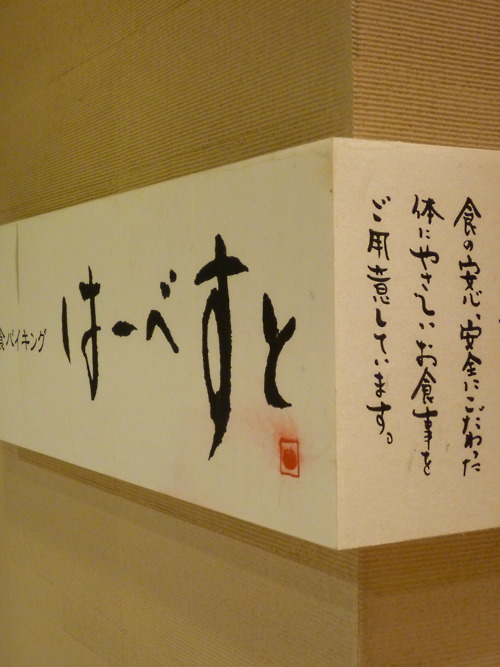 食バイキング
はーべすと
食の安心、安全にこだわった
体にやさしいお食事を
ご用意しています。